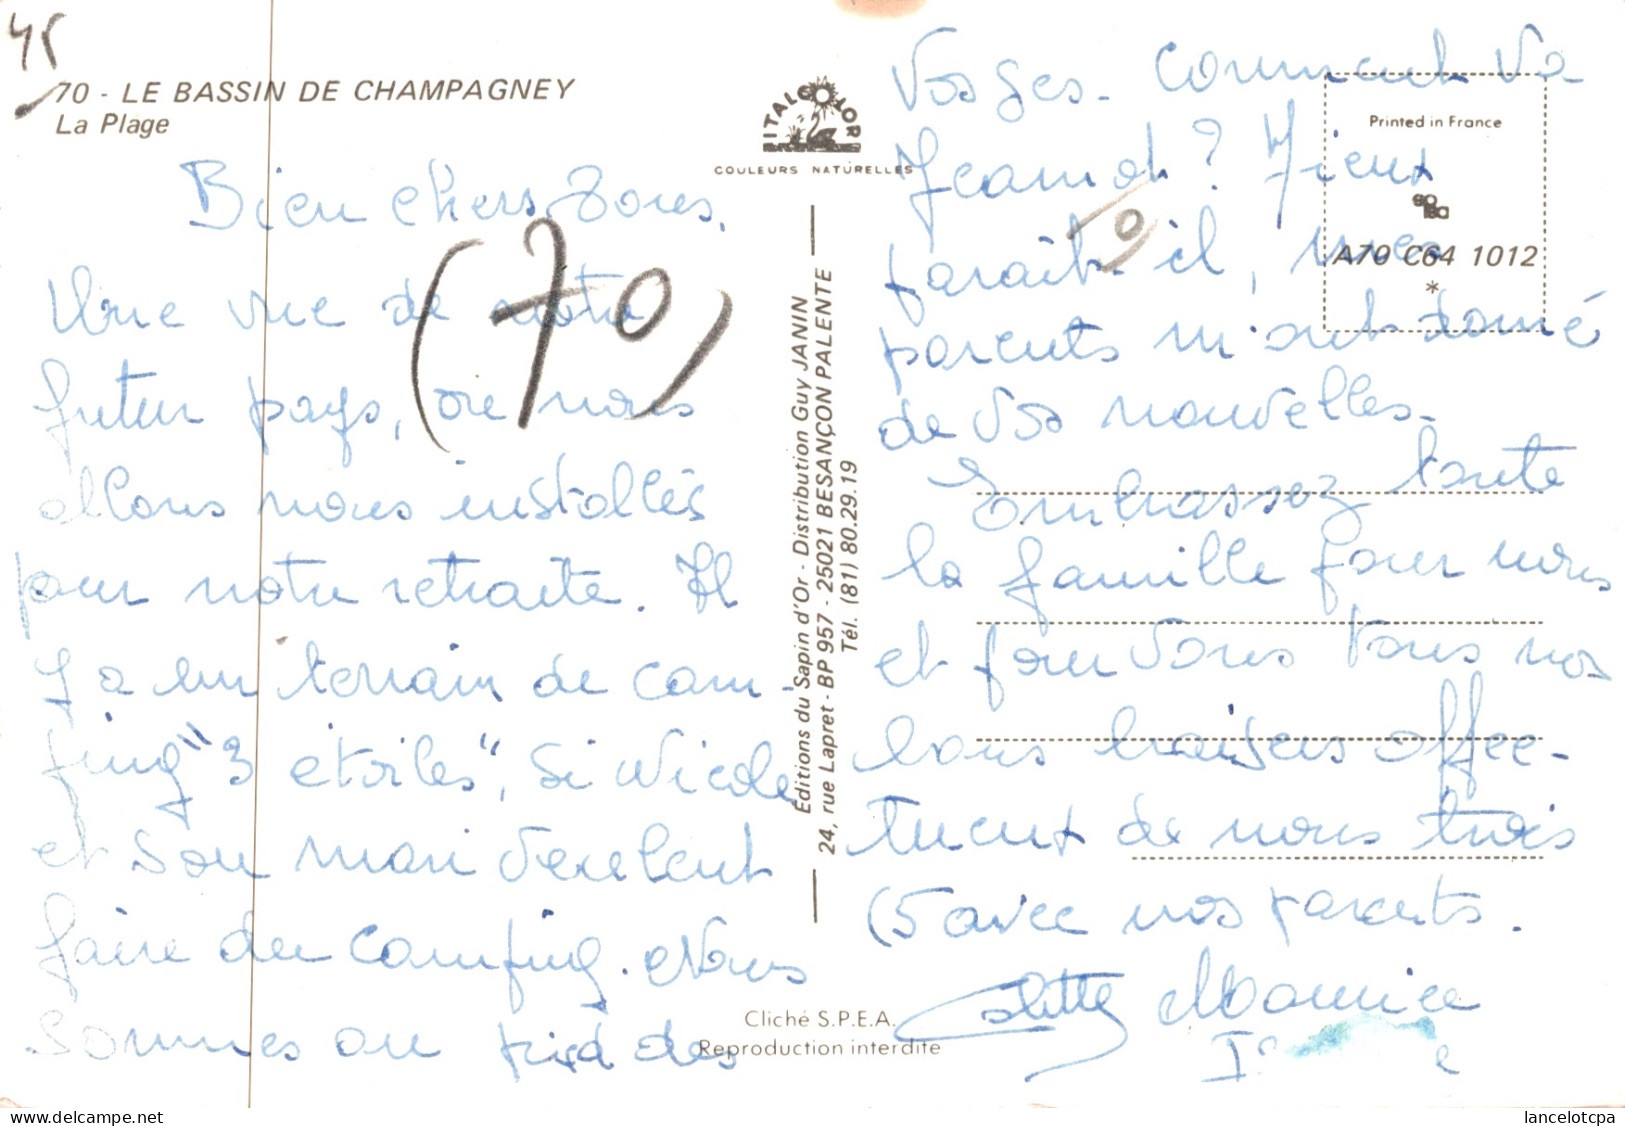 45
70 - LE BASSIN DE CHAMPAGNEY
La Plage
ITALCOLOR
COULEURS NATURELLES
Printed in France
A70 C64 1012
*
(70)
Bien chers tous,
Une vue de notre
futur pays, où nous
allons nous installés
pour notre retraite. Il
y a un terrain de cam-
ping "3 étoiles", si Nicole
et son mari veulent
faire du camping. Nous
sommes au pied des
Vosges. Comment va
Jeannot ? Mieux
paraît-il, mes
parents m'ont donné
de vos nouvelles.
Embrassez toute
la famille pour nous
et pour vous tous nos
bons baisers affec-
tueux de nous trois
(5 avec nos parents.
Colette Maurice
Éditions du Sapin d'Or - Distribution Guy JANIN
24, rue Lapret - BP 957 - 25021 BESANÇON PALENTE
Tél. (81) 80.29.19
Cliché S.P.E.A.
Reproduction interdite
lancelotcpa